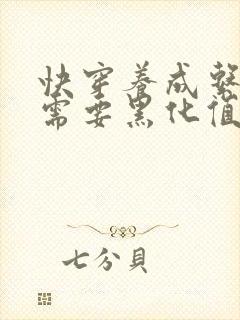 快穿养成系
需要黑化值
七分貝